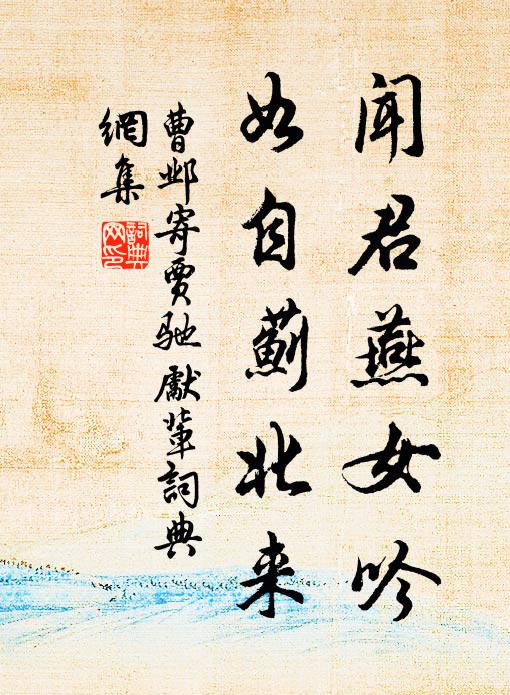 闻君燕女吟
如自蓟北来
曹邺寄贾驰獻輩詞典
網集
詞典
网印